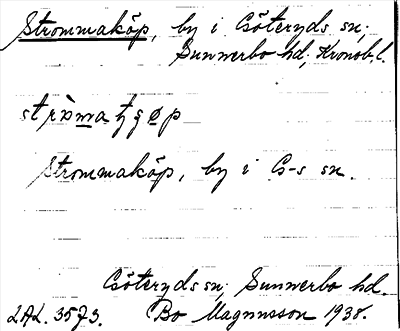 Strommaköp, by i Göteryds sn;
Sunnerbo hd, Kronob. l.
Strommaköp, by i G-s sn.
Göteryds sn; Sunnerbo hd.
LAL. 3573. Bo Magnusson 1938.